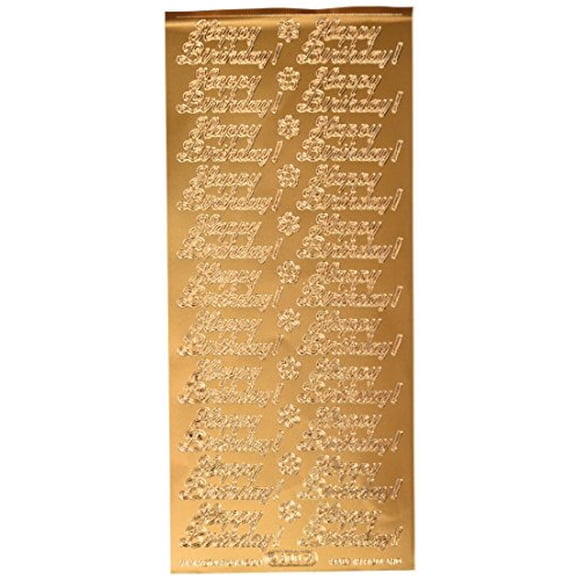 Happy Happy
Birthday! Birthday!
Happy Happy
Birthday! Birthday!
Happy Happy
Birthday! Birthday!
Happy Happy
Birthday! Birthday!
Happy Happy
Birthday! Birthday!
Happy Happy
Birthday! Birthday!
Happy Happy
Birthday! Birthday!
Happy Happy
Birthday! Birthday!
Happy Happy
Birthday! Birthday!
Happy Happy
Birthday! Birthday!
Happy Happy
Birthday! Birthday!